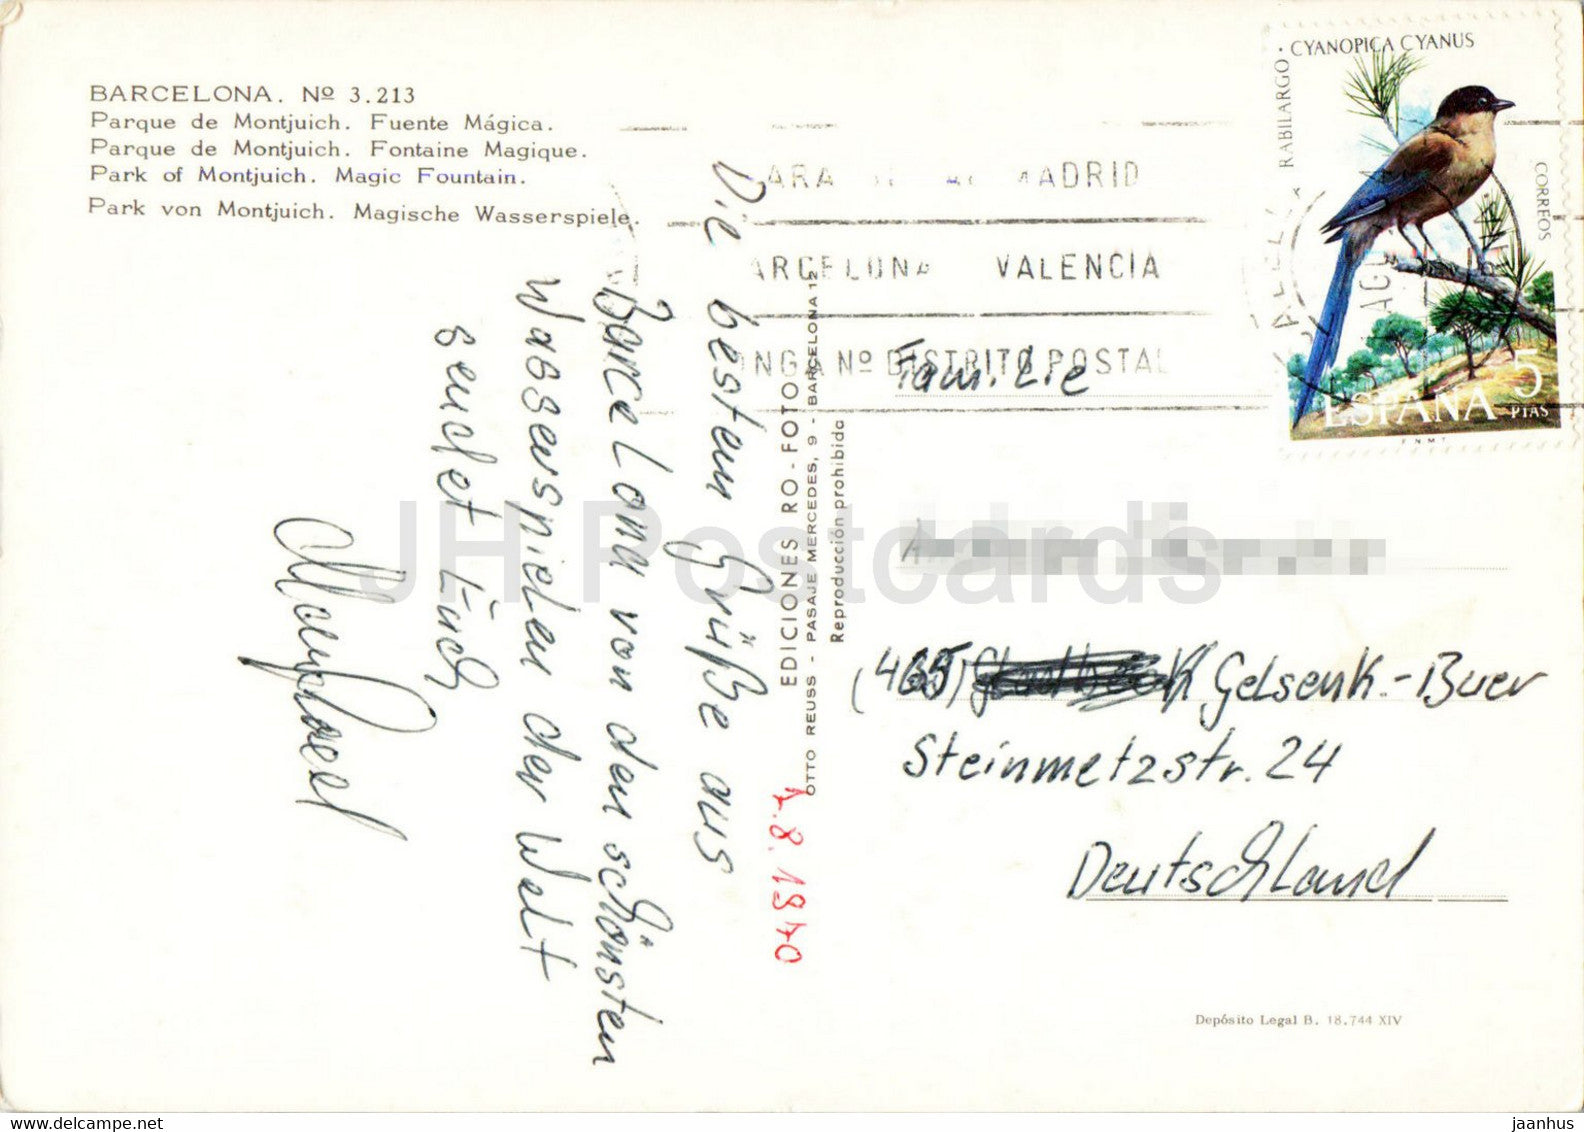 BARCELONA. Nº 3.213
Parque de Montjuich. Fuente Mágica.
Parque de Montjuich. Fontaine Magique.
Park of Montjuich. Magic Fountain.
Park von Montjuich. Magische Wasserspiele.
Die besten Grüße aus
Barcelona von den schönsten
Wasserspielen der Welt
sendet Euch
EDICIONES RO - FOTO
OTTO REUSS - PASAJE MERCEDES, 9 - BARCELONA 12
Reproducción prohibida
MADRID
VALENCIA
Nº DISTRITO POSTAL
CYANOPICA CYANUS
RABILARGO
CORREOS
ESPAÑA 5
PTAS
F.N.M.T.
Familie
(465) Gelsenk.-Buer
Steinmetzstr. 24
Deutschland
Depósito Legal B. 18.744 XIV
JH Postcards
www.delcampe.net
jaanhus